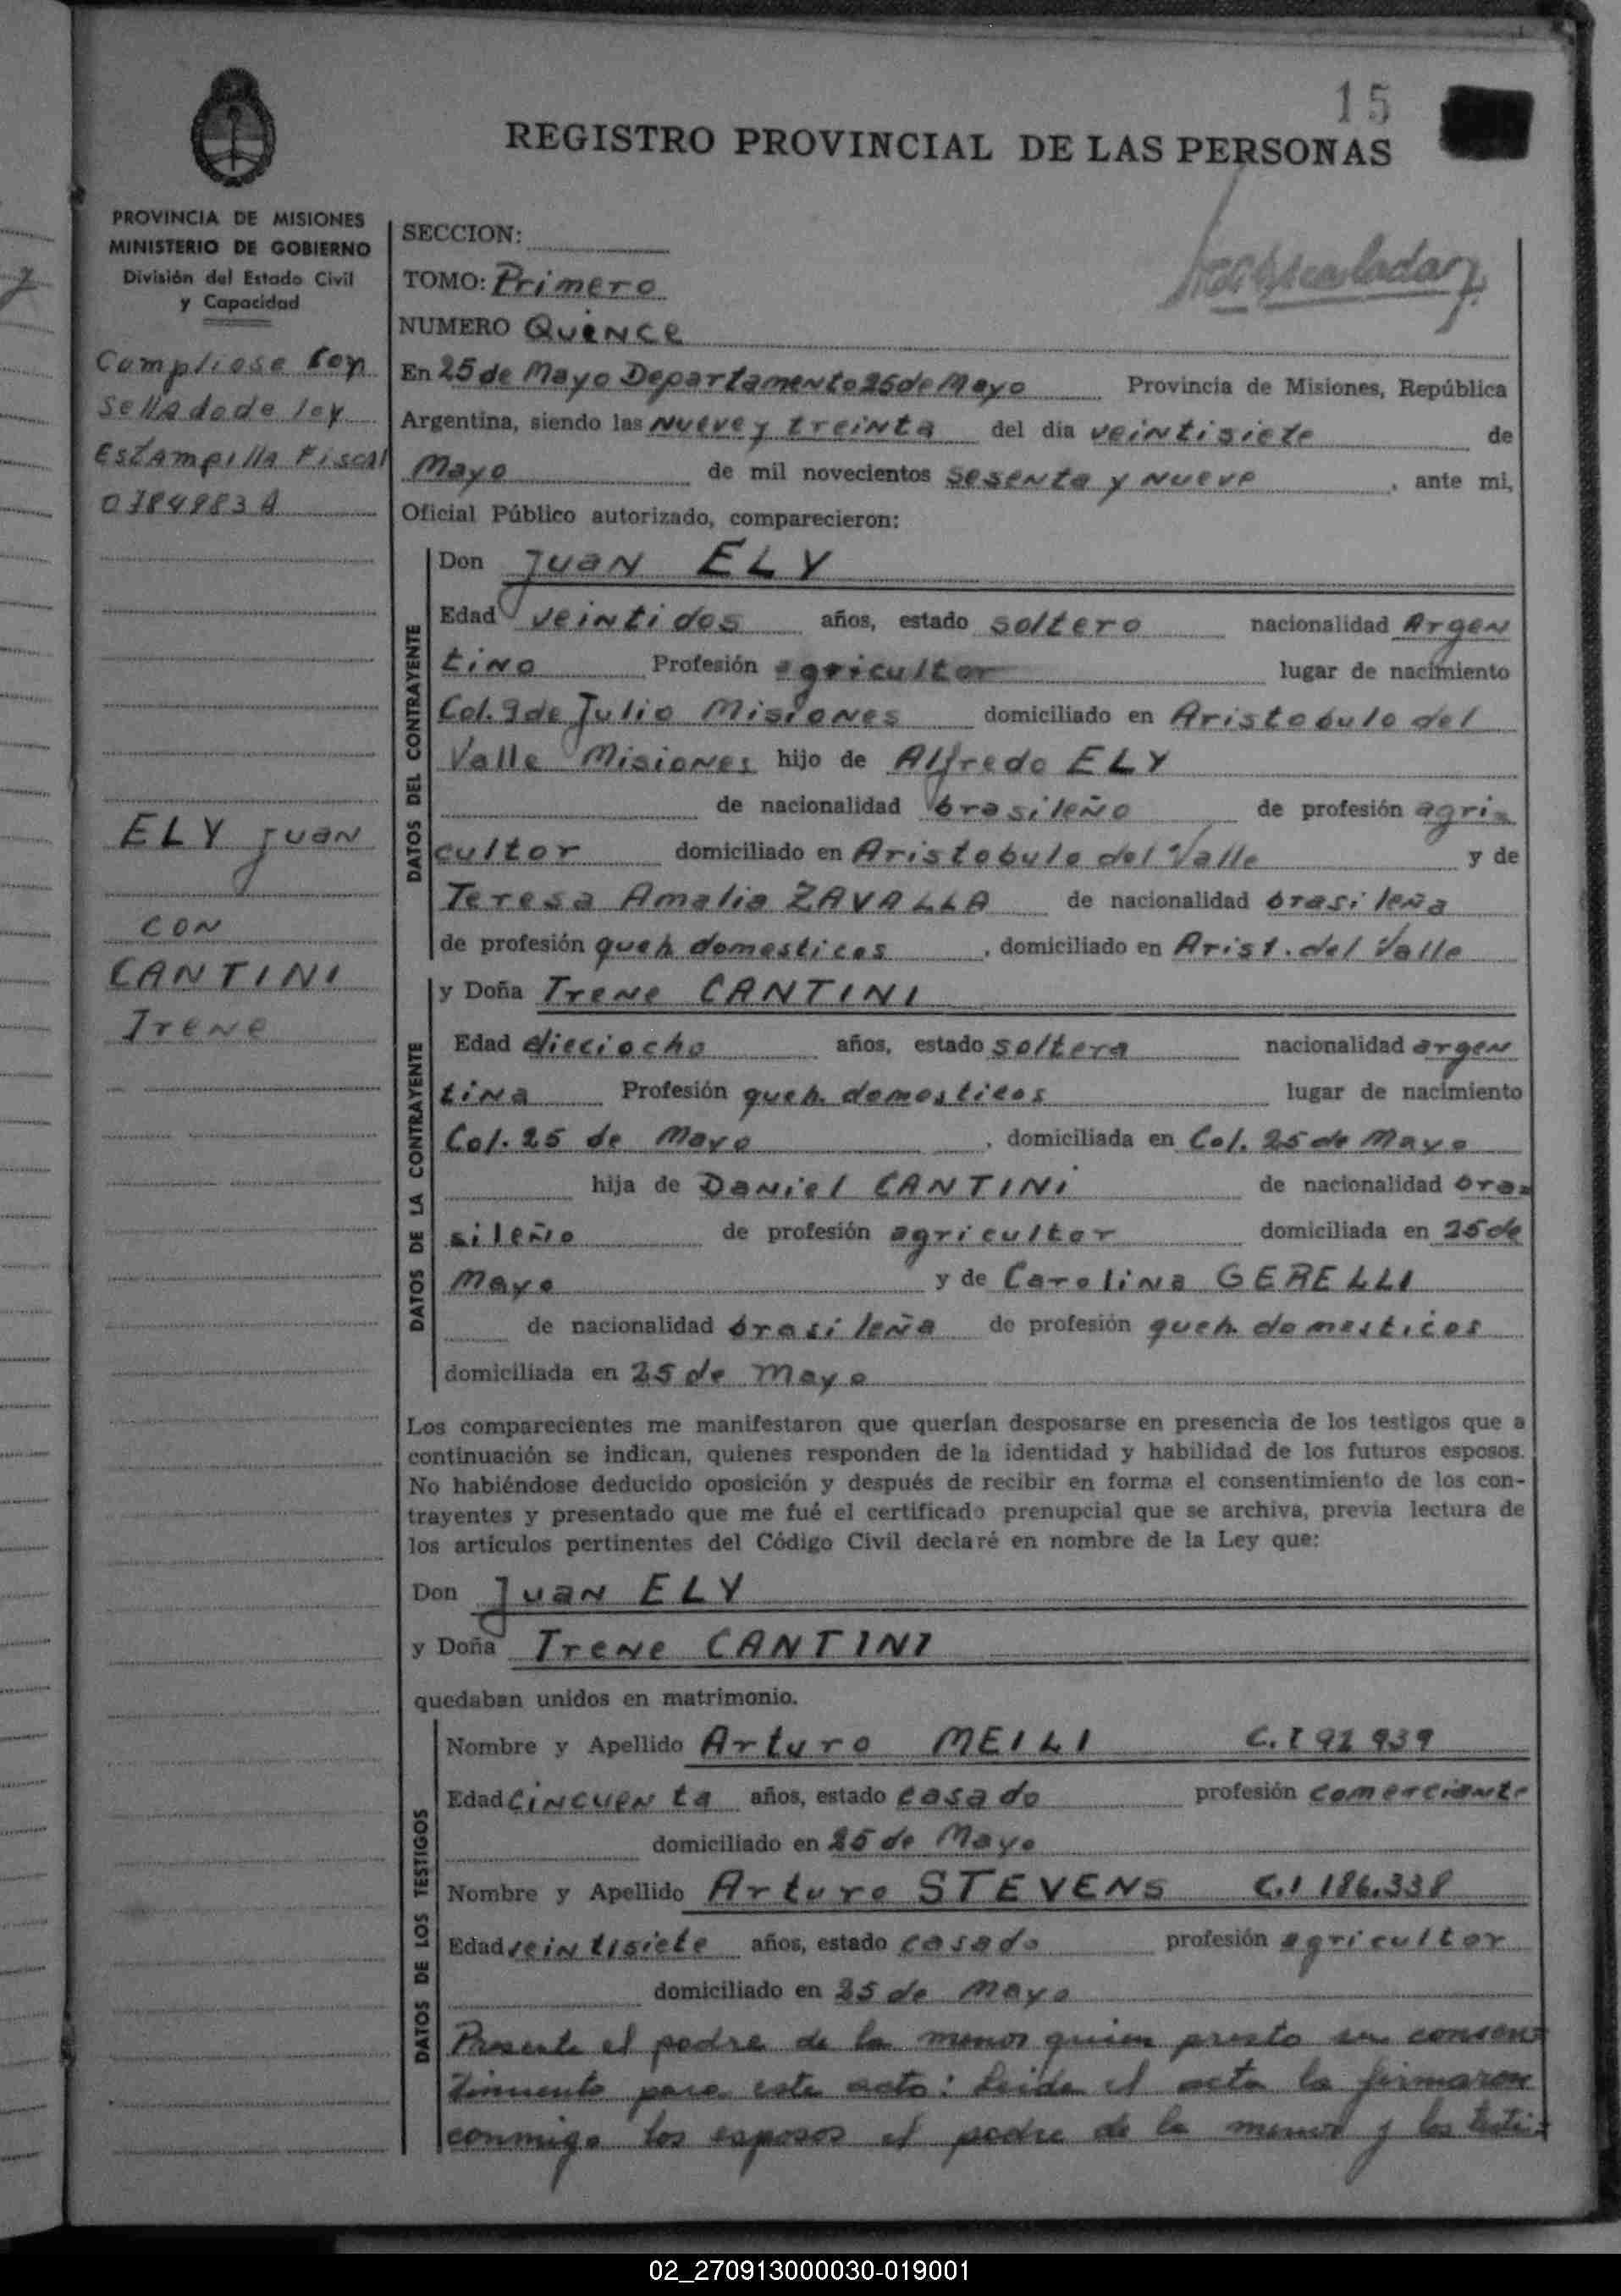 15
REGISTRO PROVINCIAL DE LAS PERSONAS
PROVINCIA DE MISIONES
MINISTERIO DE GOBIERNO
División del Estado Civil
y Capacidad
Cumpliose con
sellado de ley
Estampilla Fiscal
ELY Juan
CON
CANTINI
Irene
SECCION:
TOMO: Primero
NUMERO Quince
En 25 de Mayo Departamento 25 de Mayo Provincia de Misiones, República
Argentina, siendo las Nueve y treinta del dia veintisiete de
Mayo de mil novecientos sesenta y nueve, ante mi,
Oficial Público autorizado, comparecieron:
DATOS DEL CONTRAYENTE
Don Juan ELY
Edad veintidos años, estado soltero nacionalidad Argen
tino Profesión agricultor lugar de nacimiento
Col. 9 de Julio Misiones domiciliado en Aristobulo del
Valle Misiones hijo de Alfredo ELY
de nacionalidad brasileño de profesión agri=
cultor domiciliado en Aristobulo del Valle y de
Teresa Amalia ZAVALLA de nacionalidad brasileña
de profesión queh domesticos, domiciliado en Arist. del Valle
DATOS DE LA CONTRAYENTE
y Doña Irene CANTINI
Edad dieciocho años, estado soltera nacionalidad argen
tina Profesión queh. domesticos lugar de nacimiento
Col. 25 de Mayo, domiciliada en Col. 25 de Mayo
hija de Daniel CANTINI de nacionalidad bra=
sileño de profesión agricultor domiciliada en 25 de
Mayo y de Carolina GERELLI
de nacionalidad brasileña de profesión queh. domesticos
domiciliada en 25 de Mayo
Los comparecientes me manifestaron que querían desposarse en presencia de los testigos que a
continuación se indican, quienes responden de la identidad y habilidad de los futuros esposos.
No habiéndose deducido oposición y después de recibir en forma el consentimiento de los con-
trayentes y presentado que me fué el certificado prenupcial que se archiva, previa lectura de
los artículos pertinentes del Código Civil declaré en nombre de la Ley que:
Don Juan ELY
y Doña Irene CANTINI
quedaban unidos en matrimonio.
DATOS DE LOS TESTIGOS
Nombre y Apellido Arturo MEILI C.I 92 939
Edad cincuenta años, estado casado profesión comerciante
domiciliado en 25 de Mayo
Nombre y Apellido Arturo STEVENS C.I 186.338
Edad veintisiete años, estado casado profesión agricultor
domiciliado en 25 de Mayo
Presente el padre de la menor quien presto su consen=
timiento para este acto: Leida el acta la firmaron
conmigo los esposos el padre de la menor y los testi=
02_270913000030-019001